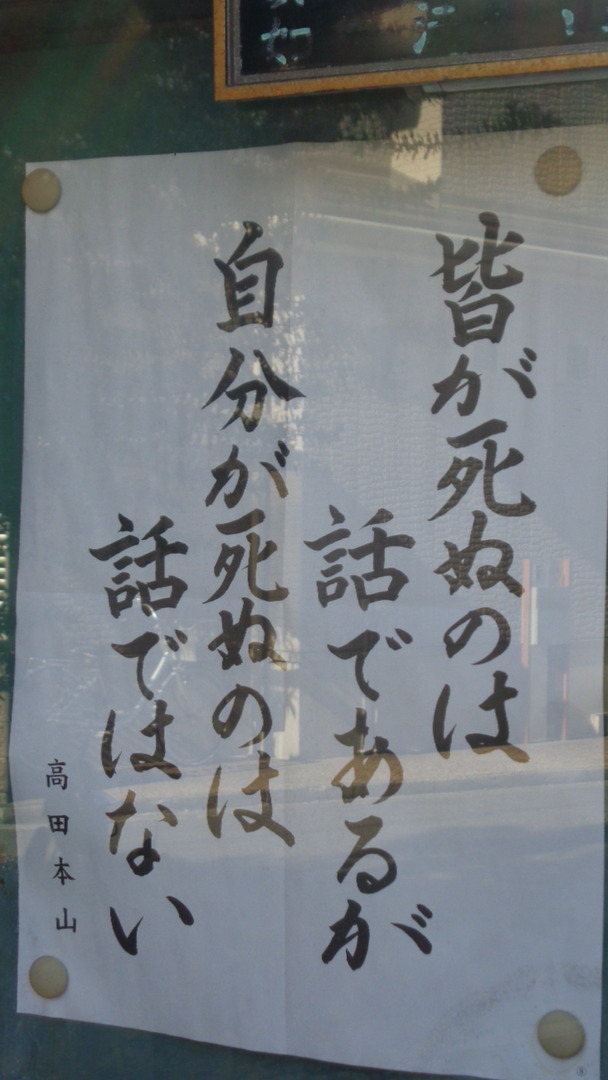 皆が死ぬのは
話であるが
自分が死ぬのは
話ではない
高田本山